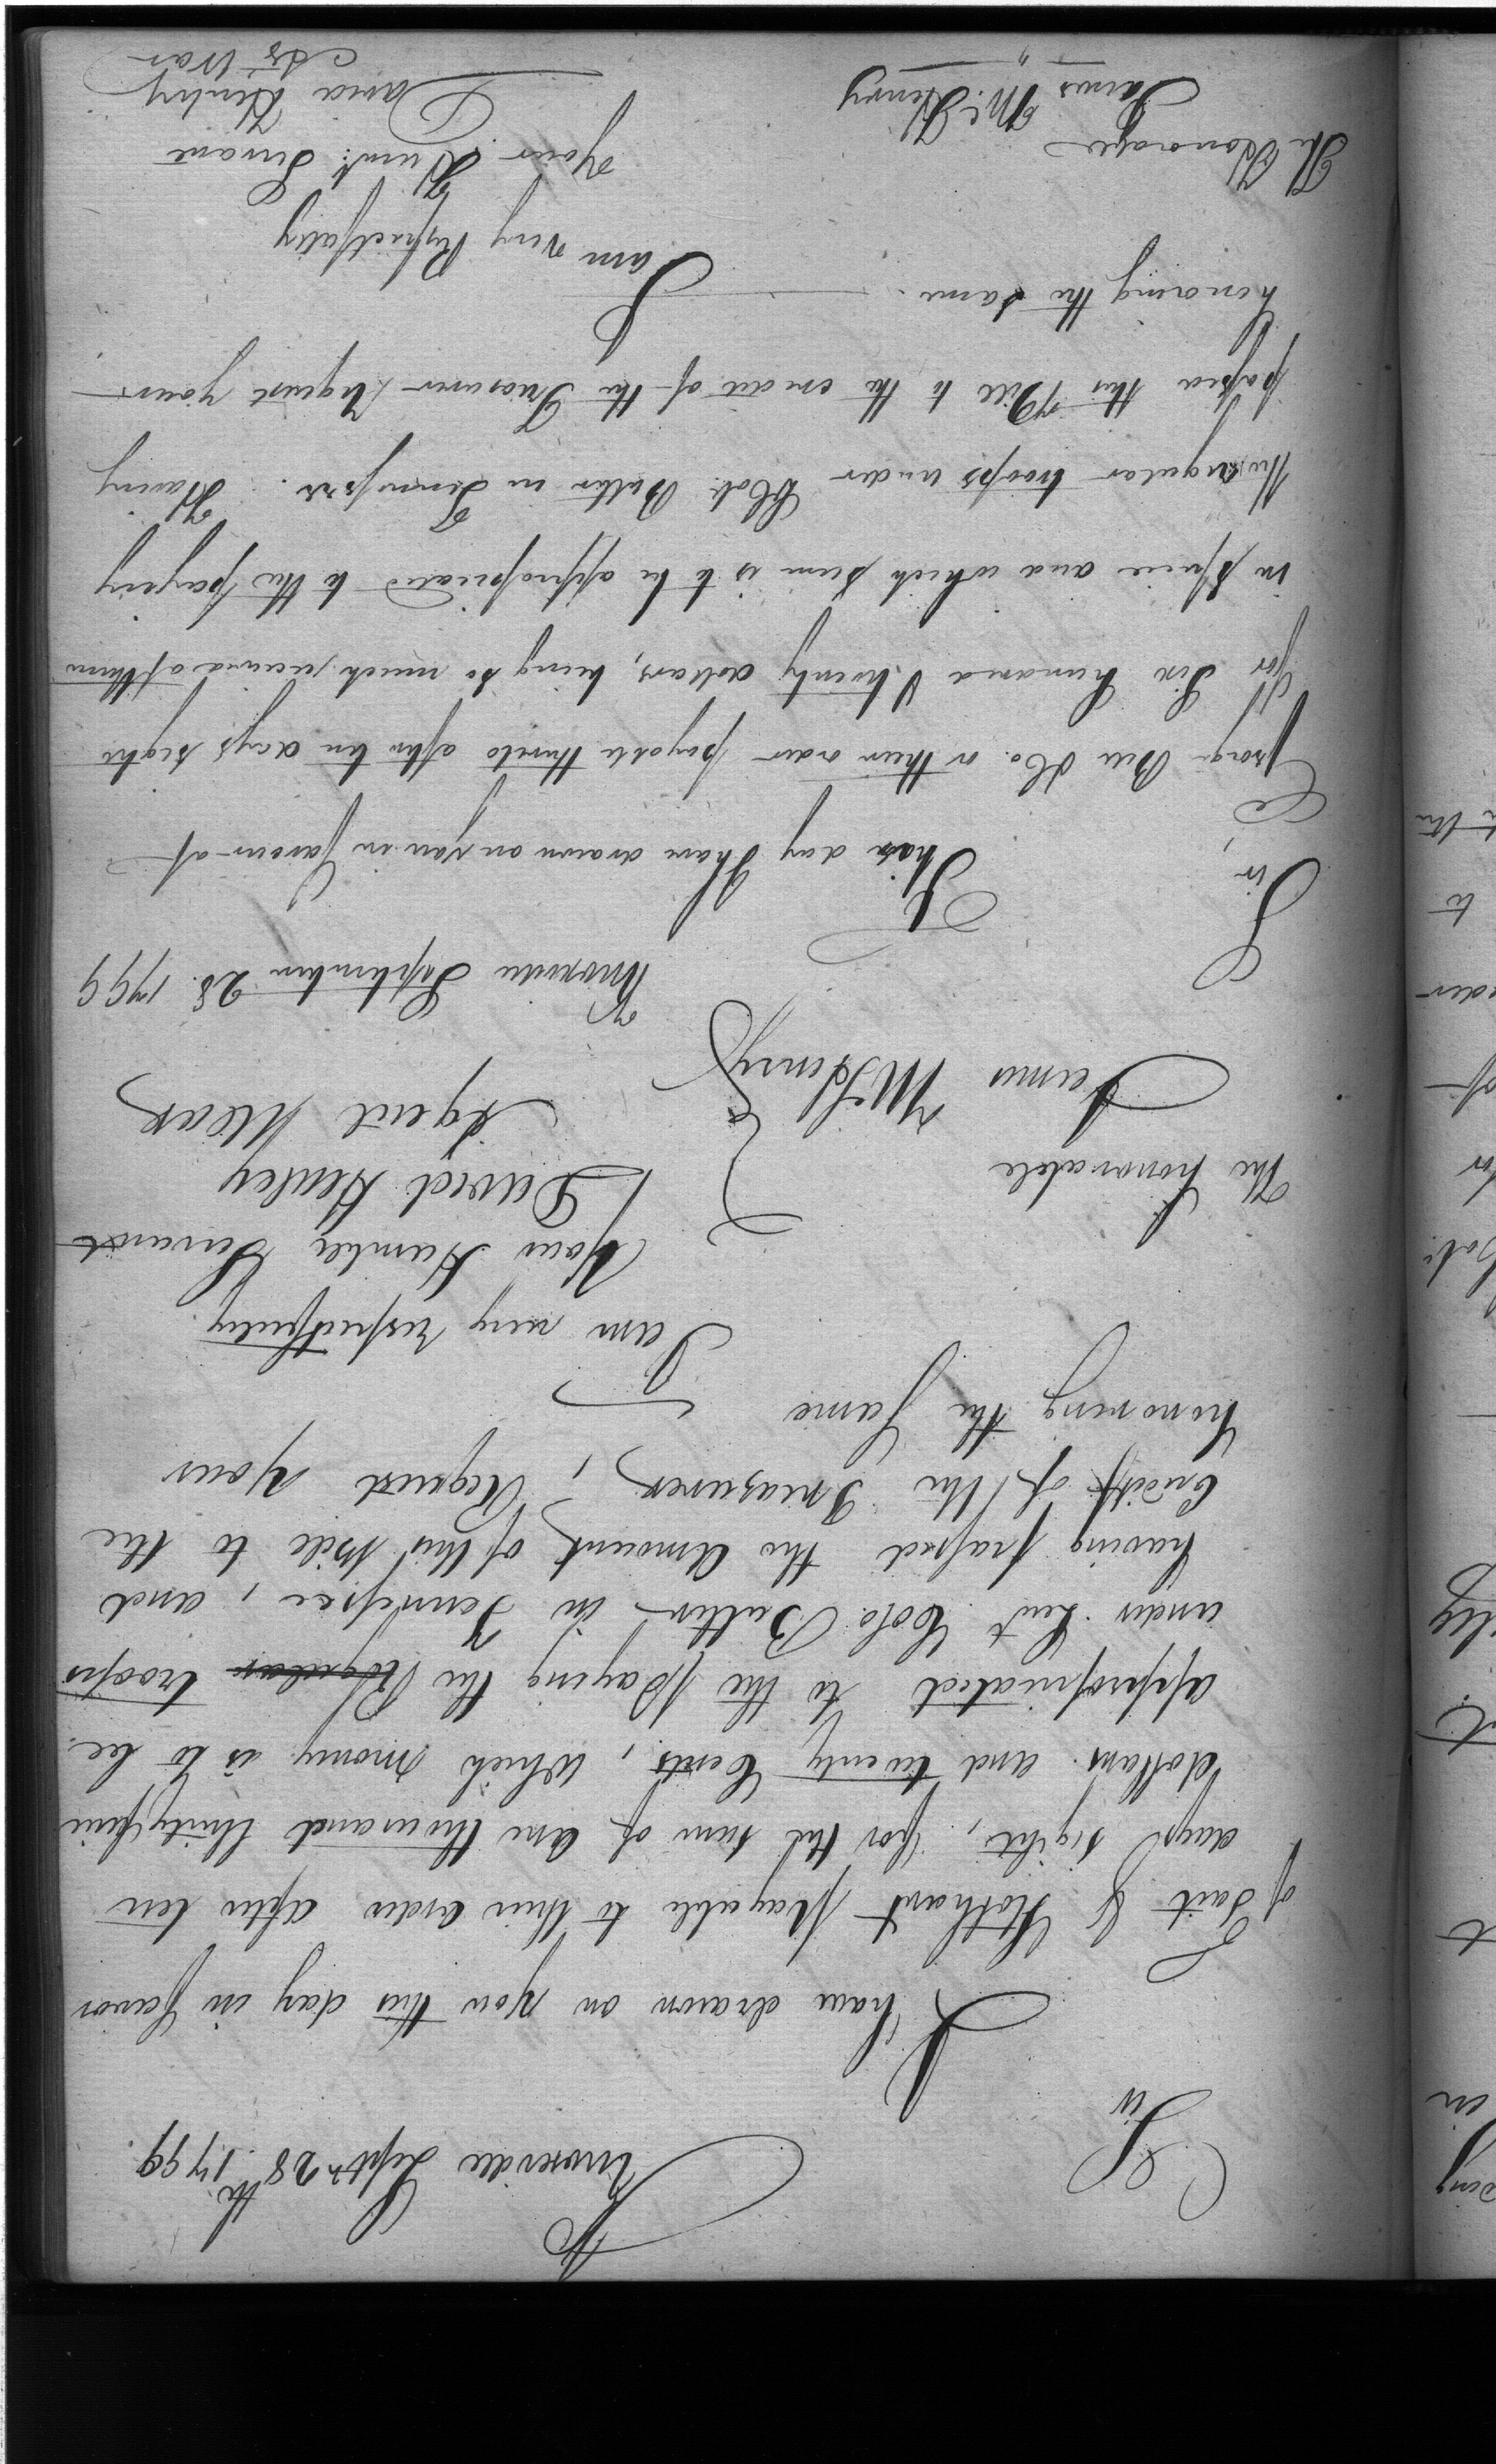 Knoxville Sept.r 28th 1799
Sir
I have drawn on you this day in favor
of Tait & Hothart payable to their order after ten
days sight, for the sum of one thousand thirty five
dollars and twenty Cents, which money is to be
appropriated to the paying the Regular troops
under Leut Colo. Butler in Tennessee, and
having passed the Amount of this bill to the
Credit of the Treasurer, Request your
honoring the same
I am very respectfully
Your Humble Servant
David Henley
Agent W War
The honorable
James McHenry
Knoxville September 28. 1799
Sir,
This day I have drawn on you in favour of
George Bell &Co. or their order payable thereto after ten days sight
for Six hundred & twenty dollars, being so much received of them
in specie and which sum is to be appropriated to the paying
the regular troops under Colo. Butler in Tennessee. Having
passed this Bill to the credit of the Treasurer Request your
honoring the same.
I am very Respectfully
Your Humb. Servant
David Henley
Ag War
The Honorable
James McHenry